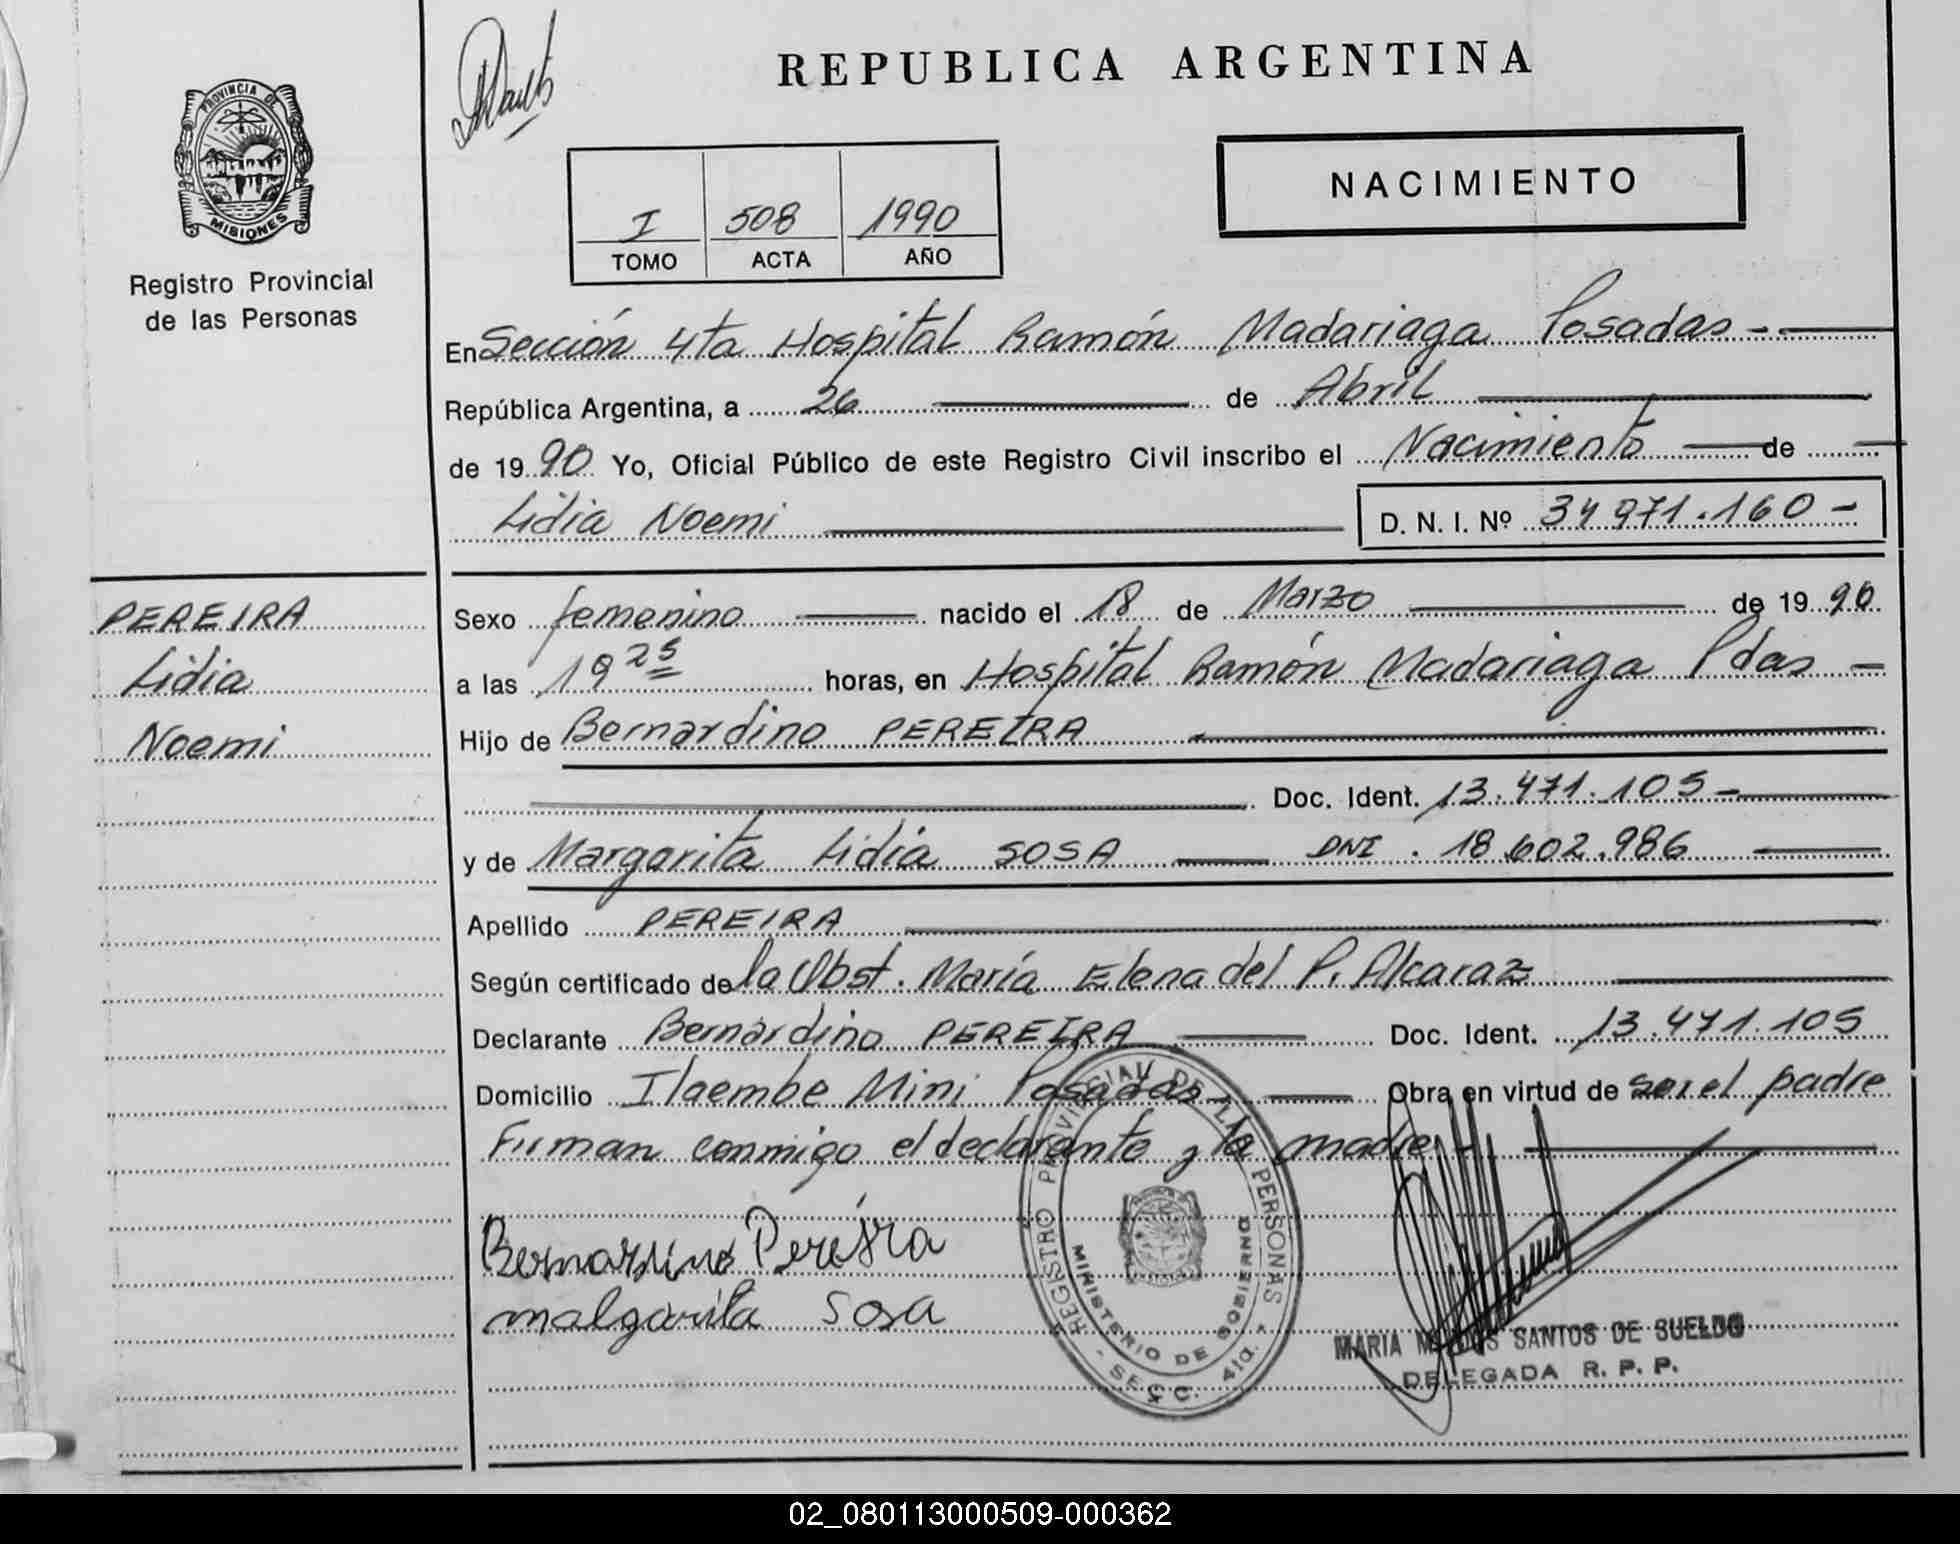 REPUBLICA ARGENTINA
PROVINCIA DE
MISIONES
Registro Provincial
de las Personas
NACIMIENTO
I 508 1990
TOMO ACTA AÑO
En Sección 4ta Hospital Ramón Madariaga Posadas -
República Argentina, a 26 de Abril
de 19 90 Yo, Oficial Público de este Registro Civil inscribo el Nacimiento de
Lidia Noemi D. N. I. Nº 34 971.160 -
PEREIRA
Lidia
Noemi
Sexo femenino nacido el 18 de Marzo de 19 90
a las 19 25 horas, en Hospital Ramón Madariaga Pdas -
Hijo de Bernardino PEREIRA
Doc. Ident. 13.471.105 -
y de Margarita Lidia SOSA DNI . 18.602.986
Apellido PEREIRA
Según certificado de la Obst. María Elena del P. Alcaraz
Declarante Bernardino PEREIRA Doc. Ident. 13.471.105
Domicilio Itaembe Mini Posadas - Obra en virtud de ser el padre
Firman conmigo el declarante y la madre -
Bernardino Pereira
malgarita Sosa
REGISTRO PROVINCIAL DE LAS PERSONAS
MINISTERIO DE GOBIERNO
- SECC. 4ta. -
MARIA M. DOS SANTOS DE SUELDO
DELEGADA R. P. P.
02_080113000509-000362